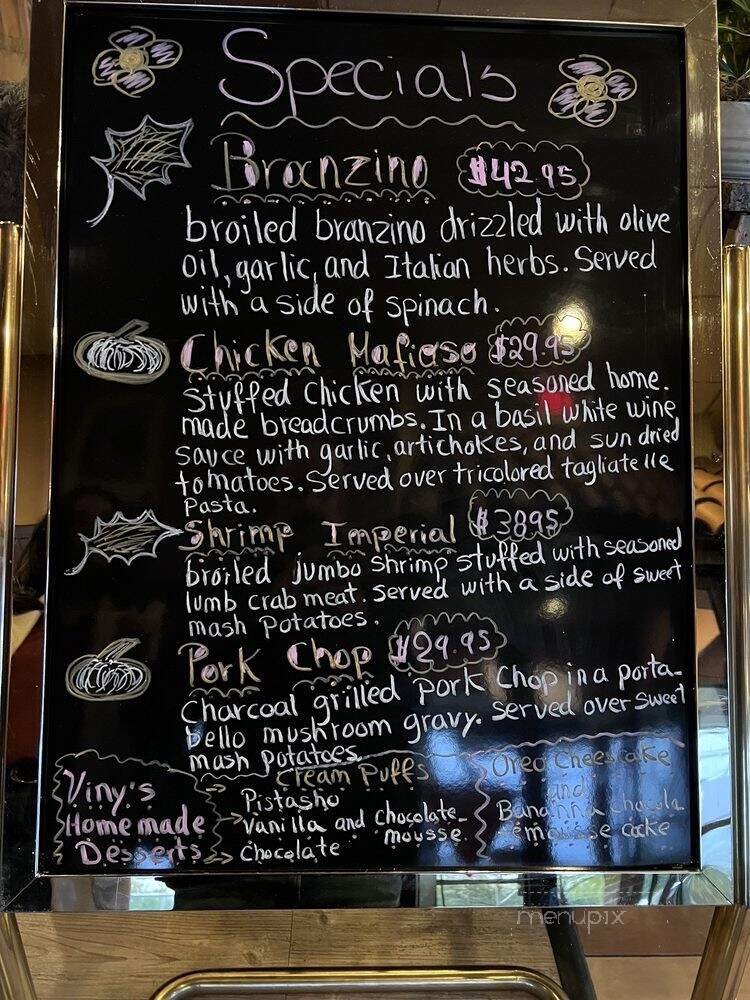 Specials
Branzino $42.95
broiled branzino drizzled with olive
oil, garlic, and Italian herbs. Served
with a side of spinach.
Chicken Mafioso $29.95
Stuffed Chicken with seasoned home-
made breadcrumbs. In a basil white wine
sauce with garlic, artichokes, and sun dried
tomatoes. Served over tricolored tagliatelle
Pasta.
Shrimp Imperial $3895
broiled jumbo shrimp stuffed with seasoned
lumb crab meat. Served with a side of sweet
mash Potatoes.
Pork Chop $29.95
Charcoal grilled Pork Chop in a porta-
bello mushroom gravy. Served over sweet
mash potatoes.
Viny's
Homemade
Desserts
Cream Puffs
Pistasho
Vanilla and chocolate
mousse
Chocolate
Oreo Cheescake
and
Bananna chocola
mousse cake
menupix